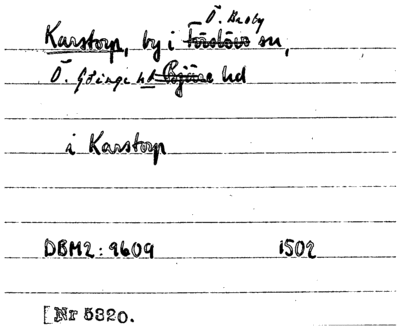 Ö. Broby
Karstorp, by i Förslöv sn,
Ö. Göinge hd Bjäre hd
i Karstorp
DBM2: 9609 1502
[Nr 5320.